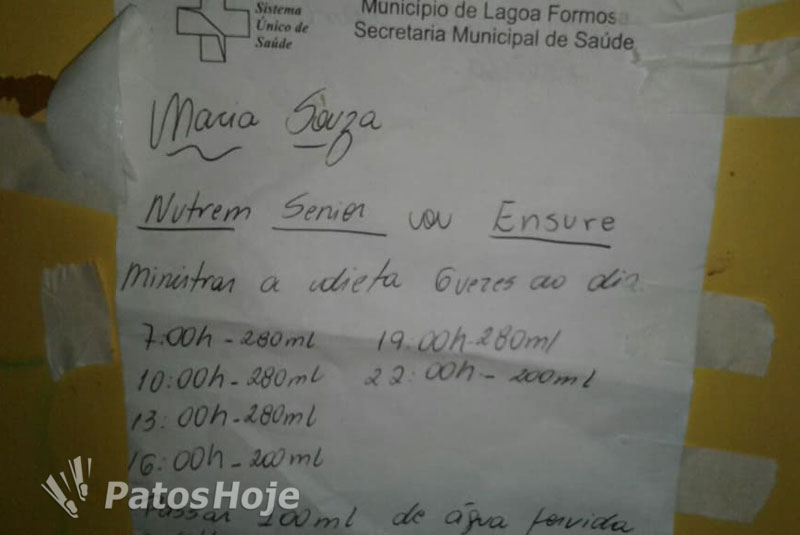 Sistema
Único de
Saúde
Município de Lagoa Formosa
Secretaria Municipal de Saúde
Maria Souza
Nutrem Senior ou Ensure
Ministrar a dieta 6 vezes ao dia
7:00h - 280ml 19:00h - 280ml
10:00h - 280ml 22:00h - 200ml
13:00h - 280ml
16:00h - 200ml
Passar 100ml de água fervida
PatosHoje